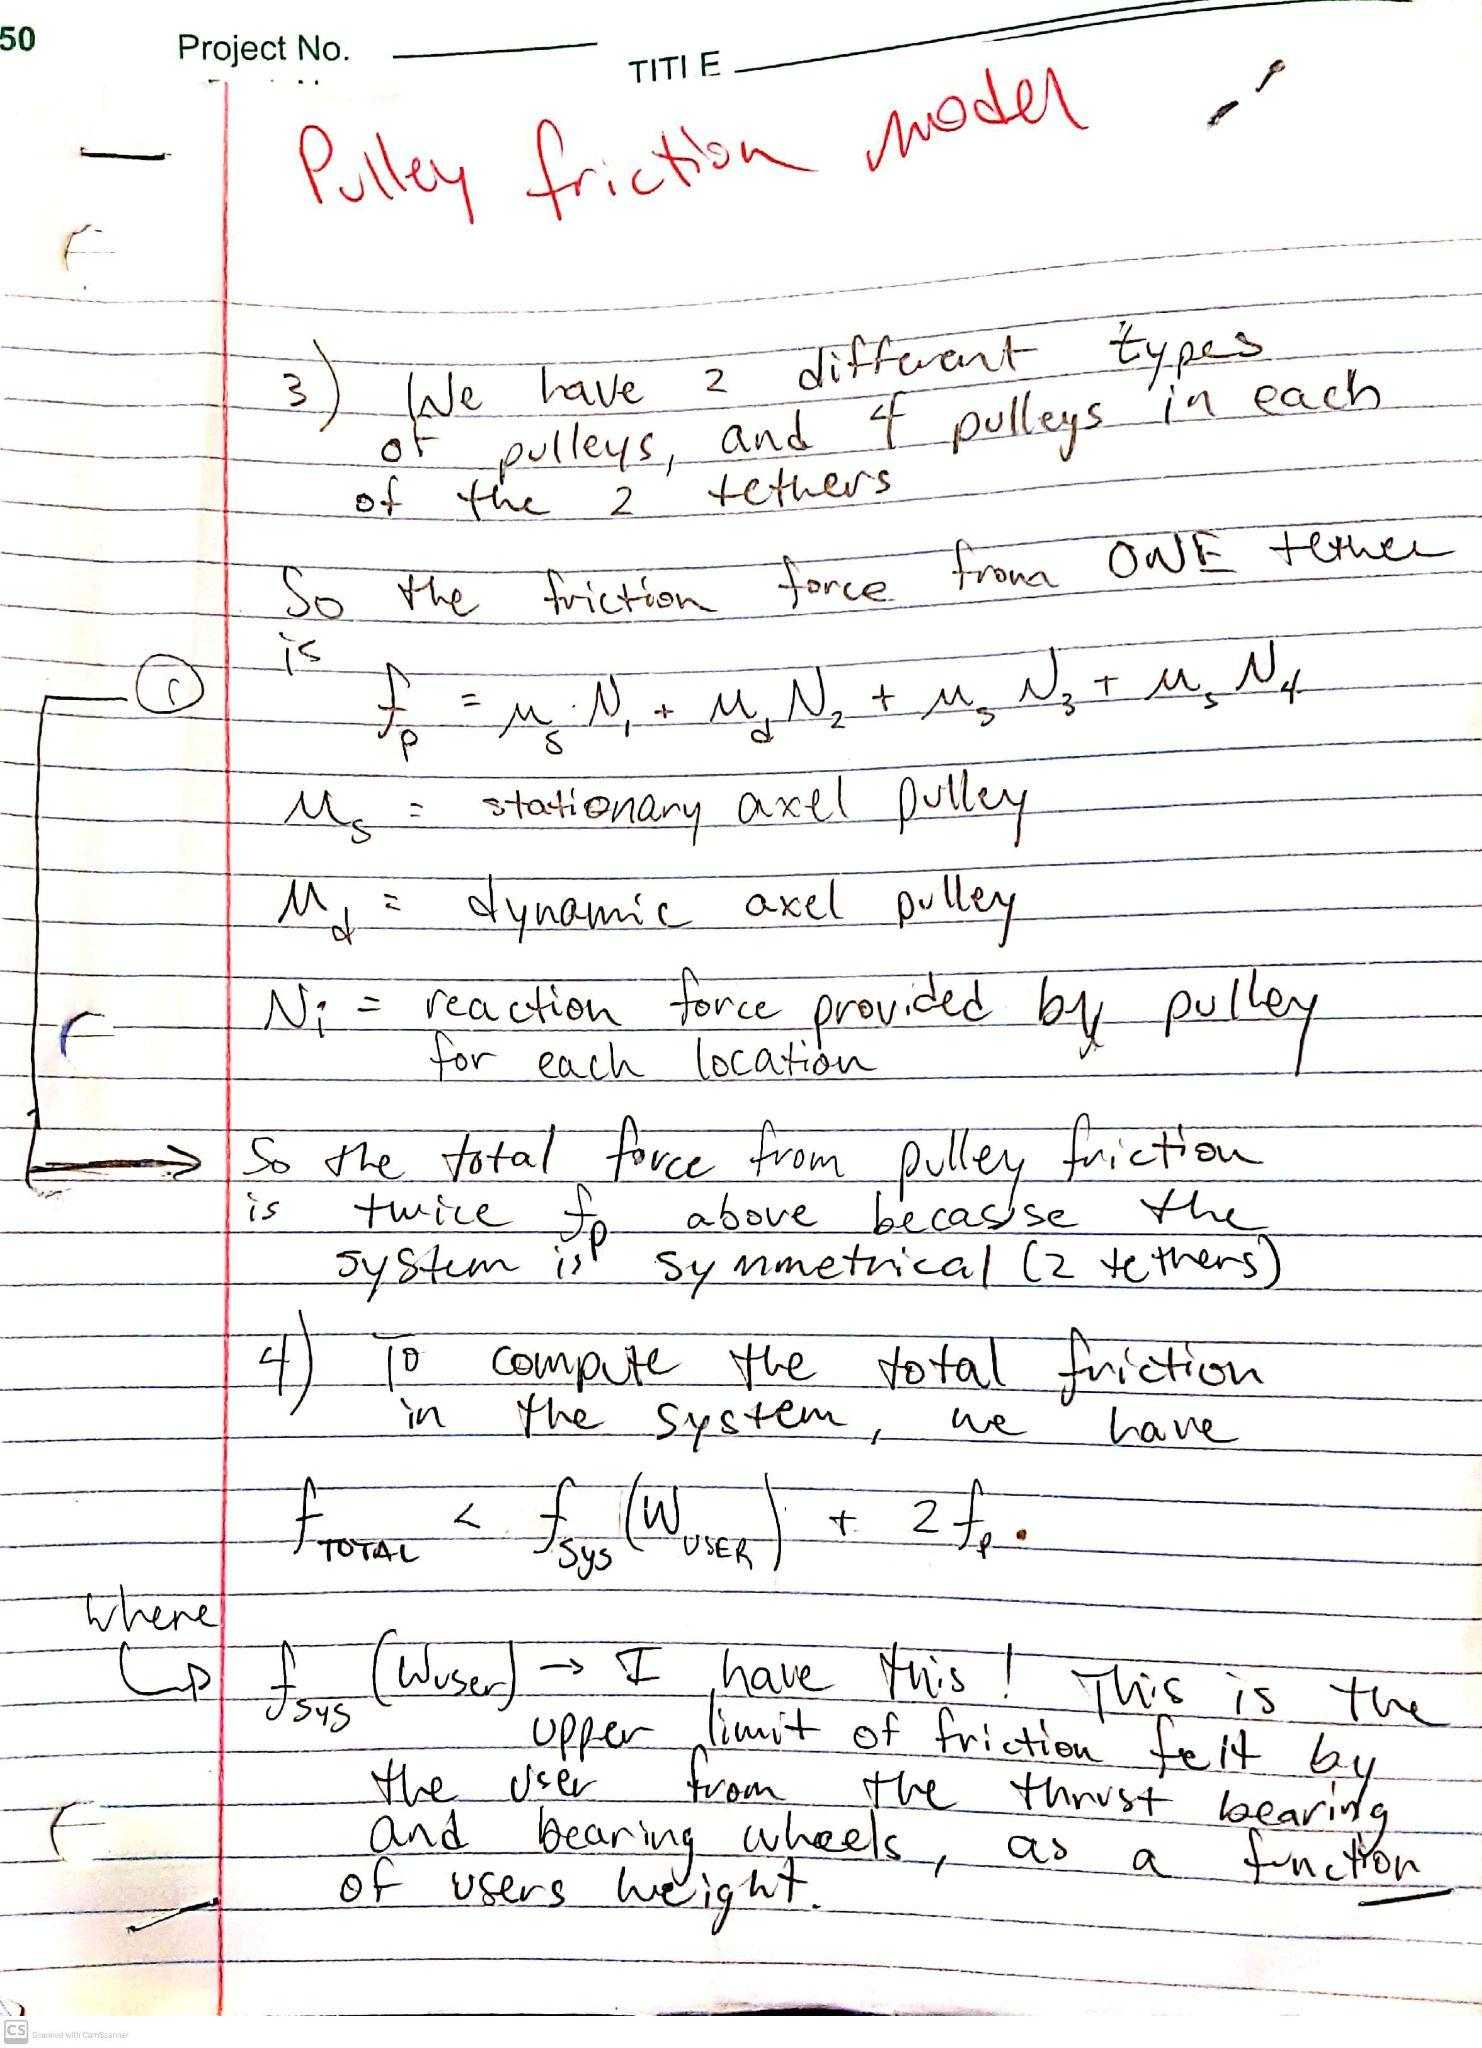 50 Project No.
TITLE
Pulley friction model
3) We have 2 different types
of pulleys, and 4 pulleys in each
of the 2 tethers
So the friction force from ONE tether
is
① f_p = μ_s N_1 + μ_d N_2 + μ_s N_3 + μ_s N_4
μ_s = stationary axel pulley
μ_d = dynamic axel pulley
N_i = reaction force provided by pulley
for each location
→ So the total force from pulley friction
is twice f_p above becasse the
system is symmetrical (2 tethers)
4) To compute the total friction
in the system, we have
f_TOTAL < f_sys (W_USER) + 2 f_p.
where
↳ f_sys (W_user) → I have this! This is the
upper limit of friction felt by
the user from the thrust bearing
and bearing wheels, as a function
of users weight.
CS Scanned with CamScanner